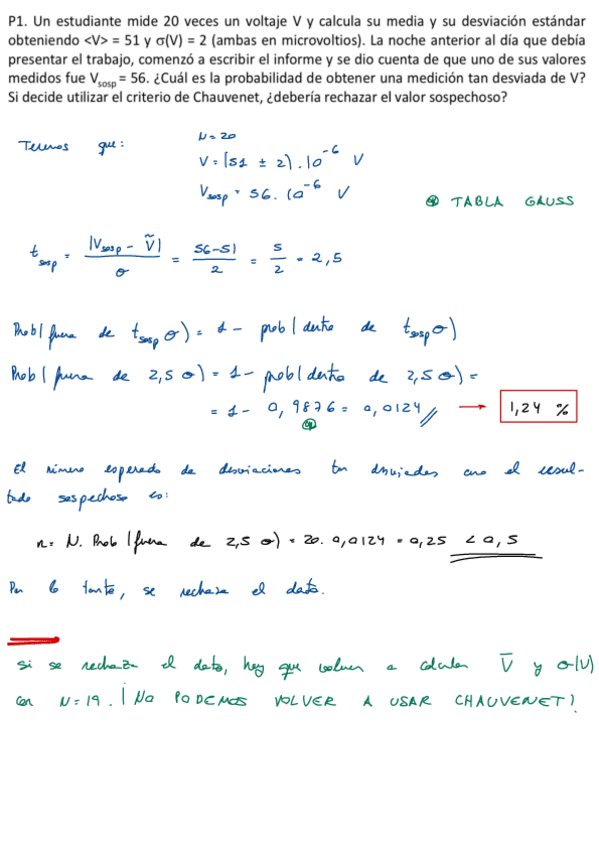 P1. Un estudiante mide 20 veces un voltaje V y calcula su media y su desviación estándar
obteniendo <V> = 51 y σ(V) = 2 (ambas en microvoltios). La noche anterior al día que debía
presentar el trabajo, comenzó a escribir el informe y se dio cuenta de que uno de sus valores
medidos fue Vsosp = 56. ¿Cuál es la probabilidad de obtener una medición tan desviada de V?
Si decide utilizar el criterio de Chauvenet, ¿debería rechazar el valor sospechoso?
Tenemos que: N = 20
V = (51 ± 2) . 10^-6 V
Vsosp = 56 . 10^-6 V
TABLA GAUSS
tsosp = |Vsosp - Ṽ| / σ = 56-51 / 2 = 5/2 = 2,5
Prob(fuera de tsosp σ) = 1 - prob(dentro de tsosp σ)
Prob(fuera de 2,5 σ) = 1 - prob(dentro de 2,5 σ) =
= 1 - 0,9876 = 0,0124 → 1,24 %
El número esperado de desviaciones tan desviadas como el resul-
tado sospechoso es:
n = N. Prob(fuera de 2,5 σ) = 20. 0,0124 = 0,25 < 0,5
Por lo tanto, se rechaza el dato.
Si se rechaza el dato, hay que volver a calcular V̅ y σ(V)
con N = 19. ¡NO PODEMOS VOLVER A USAR CHAUVENET!